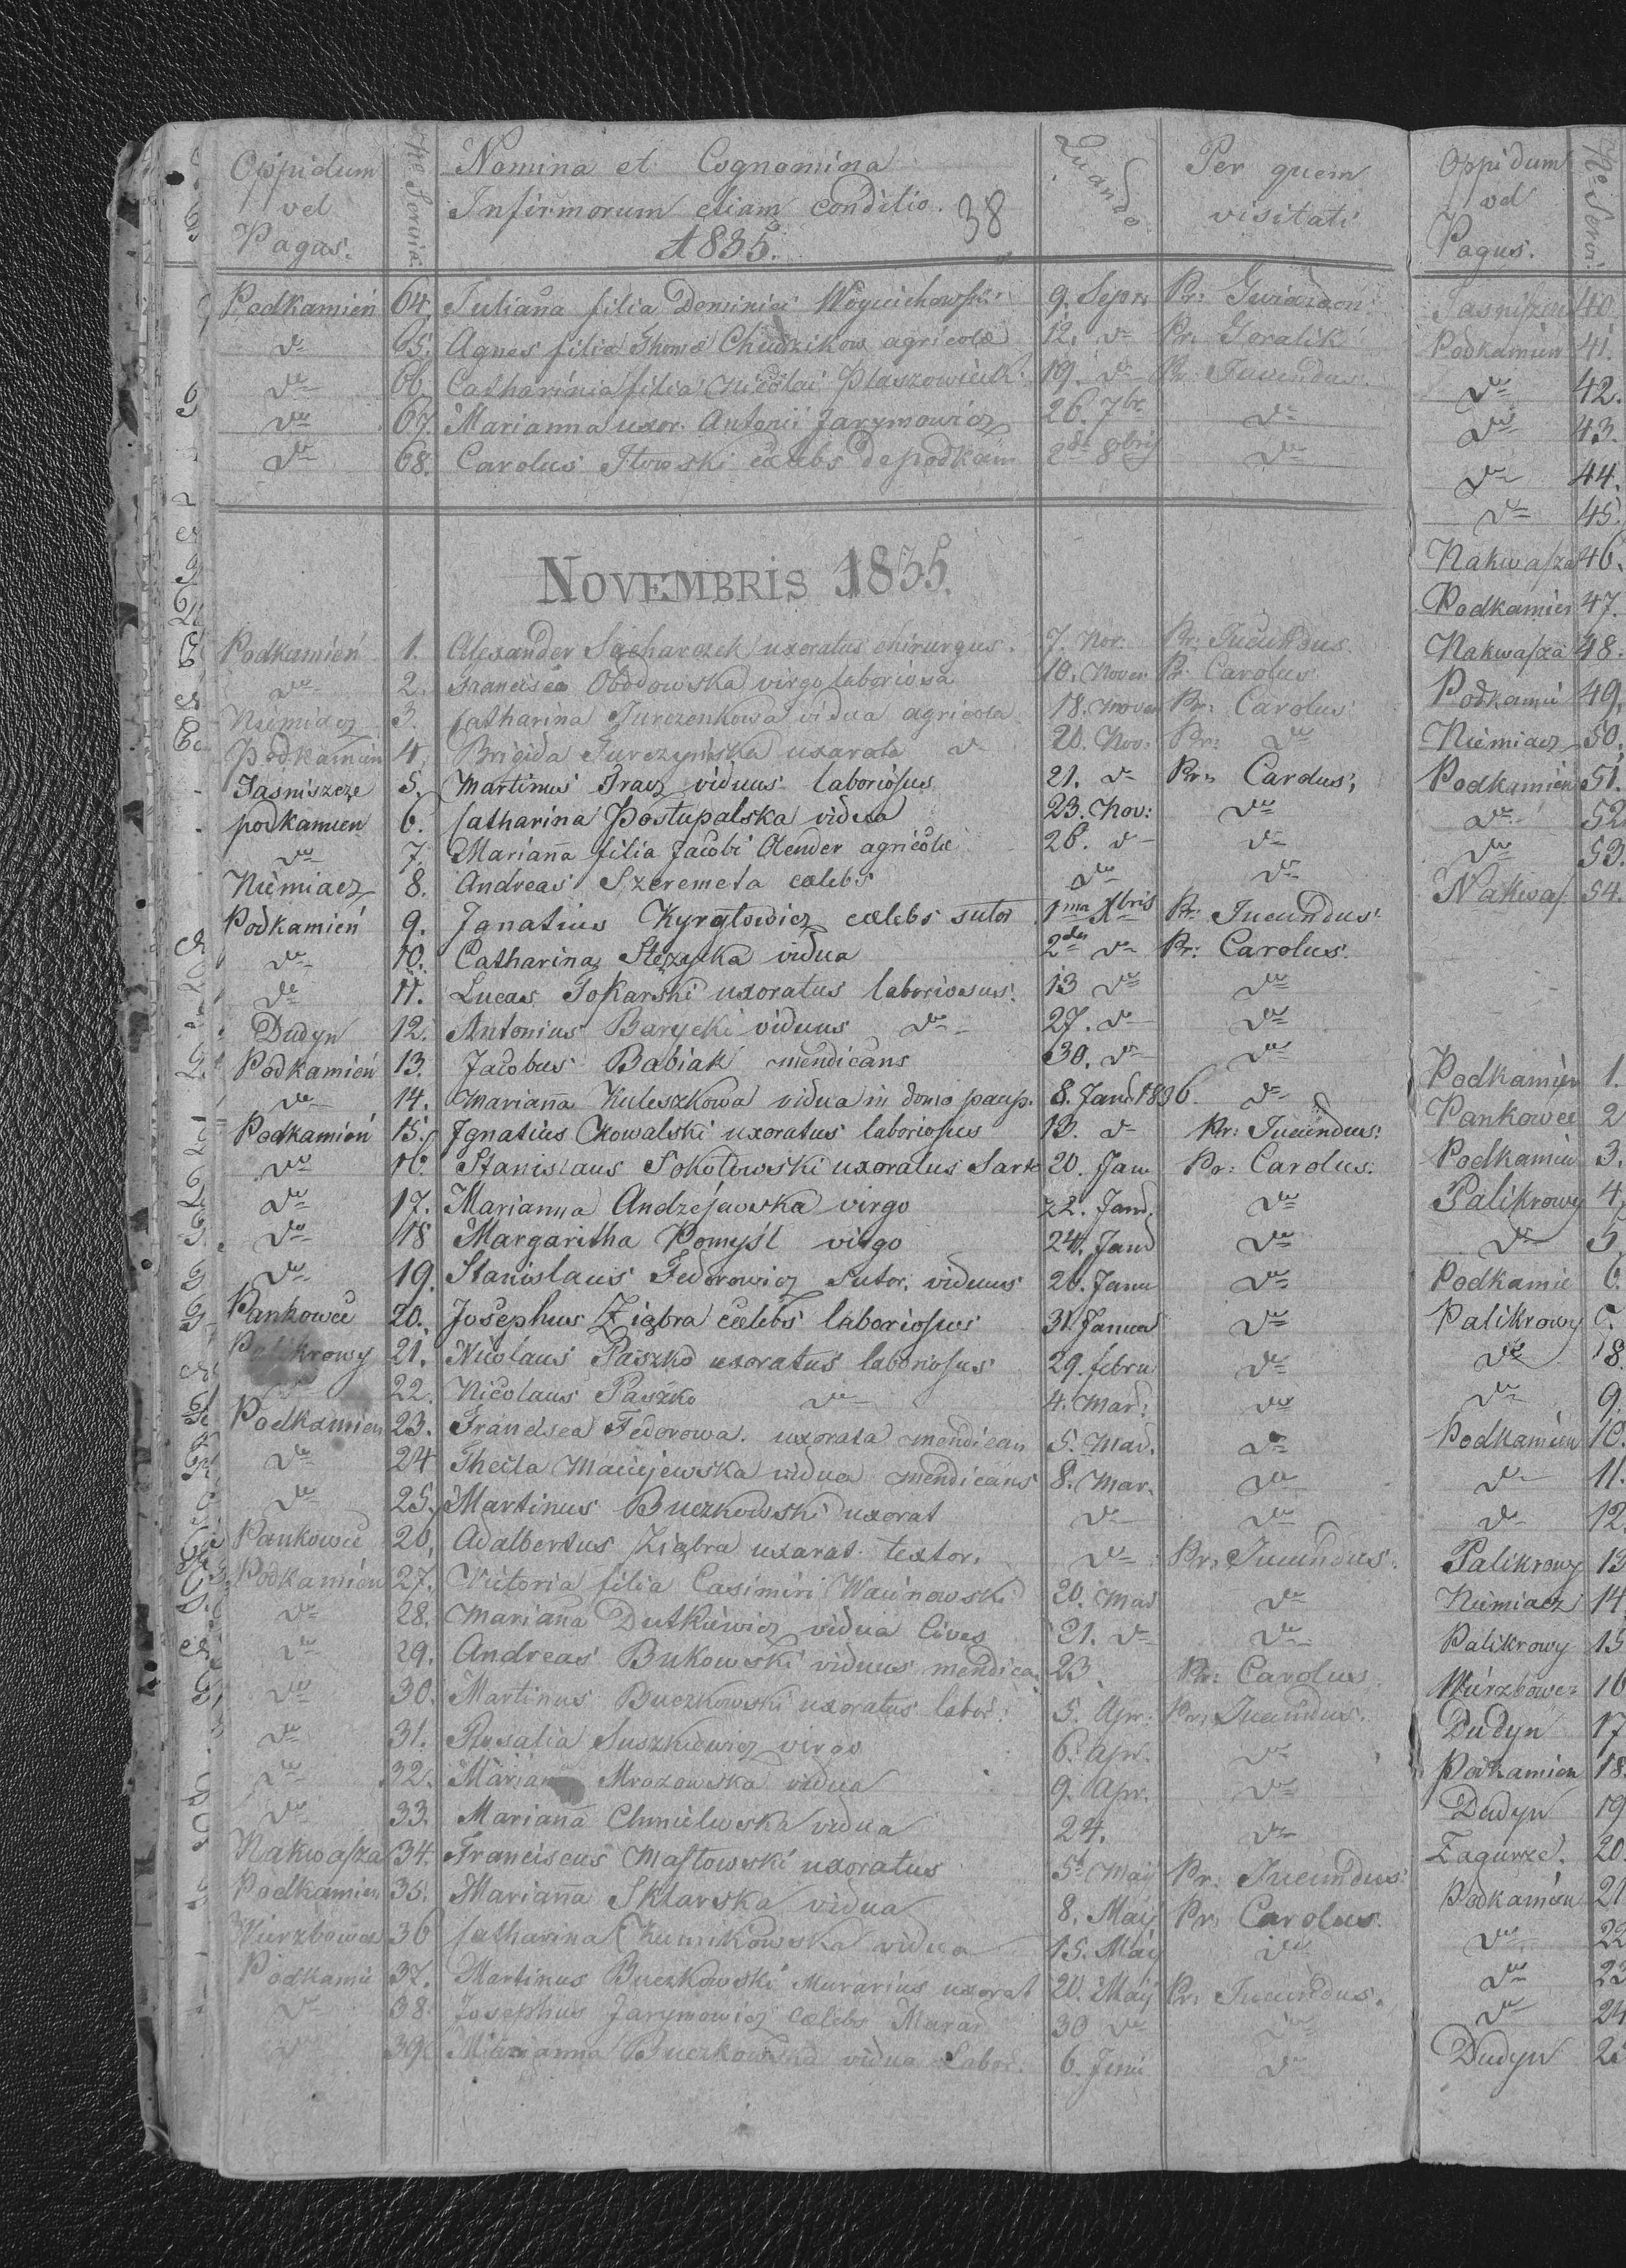 Oppidum vel Pagus. No Serviæ Nomina et Cognomina Infirmorum etiam conditio. 1835. 38 Quando Per quem visitati
Podkamień 64. Julianna filia Dominici 9. Sepr. Pr: Gwiazdon
do 65. Agnes filia Thomæ Chudzikow agricolæ 12. do Pr. Goralik
do 66. Catharina filia Nicolai Ptaszowiuk 19. do Pr. Jucundus.
do 67. Marianna uxor Antonii Jarymowicz 26. 7br do
do 68. Carolus Itowski cælebs de podkam 2da 8bris do
NOVEMBRIS 1835.
Podkamień 1. Alexander Sącharczek uxoratus chirurgus. 7. Nov. Pr: Jucundus.
do 2. Francisca Obodowska virgo laboriosa 10. Novem Pr. Carolus
Niemiacz 3. Catharina Jurczenkowa vidua agricola 18. Novem Pr: Carolus
Podkamien 4. Brigida Jurczyńska uxorata do 20. Nov: Pr: do
Jasniszcze 5. Martinus Tracz viduus laboriosus 21. do Pr: Carolus,
podkamien 6. Catharina Postupalska vidua 23. Nov: do
do 7. Mariana filia Jacobi Olender agricolæ 26. do do
Niemiacz 8. Andreas Szeremeta cælebs do do
Podkamień 9. Ignatius Kyryłowicz cælebs sutor 1ma Xbris Pr: Jucundus
do 10. Catharina Stęzycka vidua 2da do Pr: Carolus.
do 11. Lucas Tokarski uxoratus laboriosus. 13 do do
Dudyn 12. Antonius Barycki viduus do 27. do do
Podkamień 13. Jacobus Babiak mendicans 30. do do
do 14. Mariana Kuleszkowa vidua in domo paup. 8. Janu 1836. do
Podkamień 15. Ignatius Kowalski uxoratus laboriosus 13. do Pr: Jucundus.
do 16. Stanislaus Sokołowski uxoratus Sarto 20. Jan Pr: Carolus.
do 17. Marianna Andzejawska virgo 22. Janu. do
do 18 Margaritha Pomyśl virgo 24. Janu do
do 19. Stanislaus Fedorowicz sutor. viduus 26. Janu do
Pankowce 20. Josephus Ziąbra cælebs laboriosus 31. Janua do
Palikrowy 21. Nicolaus Paszko uxoratus laboriosus 29. febru do
do 22. Nicolaus Paszko do 4. Mar: do
Podkamien 23. Francisca Fedorowa. uxorata mendican 5. Mar. do
do 24 Thecla Maciejewska vidua mendicans 8. Mar. do
do 25. Martinus Buczkowski uxorat do do
Pankowce 26. Adalbertus Ziąbra uxorat. textor. do Pr: Jucundus.
Podkamień 27. Victoria filia Casimiri Wacinowski 20. Mar do
do 28. Mariana Dutkiewicz vidua Cives 21. do do
do 29. Andreas Bukowski viduus mendica. 23. Pr: Carolus
do 30. Martinus Buczkowski uxoratus labor: 5. Apr: Pr: Jucundus.
do 31. Rosalia Suszkiewicz virgo 6. Apr. do
do 32. Mariana Mrozowska vidua 9. Apr. do
do 33. Mariana Chmielewska vidua 24. do
Nakwasza 34. Franciscus Masłowski uxoratus 5t Maij Pr: Jucundus.
Podkamien 35. Mariana Sklarska vidua 8. Maij Pr: Carolus.
Wierzbowce 36 Catharina Kumikowska vidua 15. Maij do
Podkamie 37. Martinus Buczkowski Murarius uxorat 20. Maij Pr: Jucundus.
do 38. Josephus Jarymowicz cælebs Murar 30 do do
do 39. Marianna Buczkowska vidua Labor. 6. Juni do
Oppidum vel Pagus. No Servi.
Jasniszcze 40
Podkamien 41.
do 42.
do 43.
do 44.
do 45.
Nakwasza 46.
Podkamień 47.
Nakwasza 48.
Podkamie 49.
Niemiacz 50.
Podkamien 51.
do 52
do 53.
Nakwas 54.
Podkamien 1.
Pankowce 2
Podkamie 3.
Palikrowy 4.
do 5.
Podkamie 6.
Palikrowy 7.
do 8.
do 9.
Podkamien 10.
do 11.
do 12.
Palikrowy 13
Niemiacz 14
Palikrowy 15
Wierzbowce 16
Dudyn 17
Podkamien 18.
Dudyn 19
Zagurze. 20.
Podkamien 21
do 22
do 23
do 24
Dudyn 25